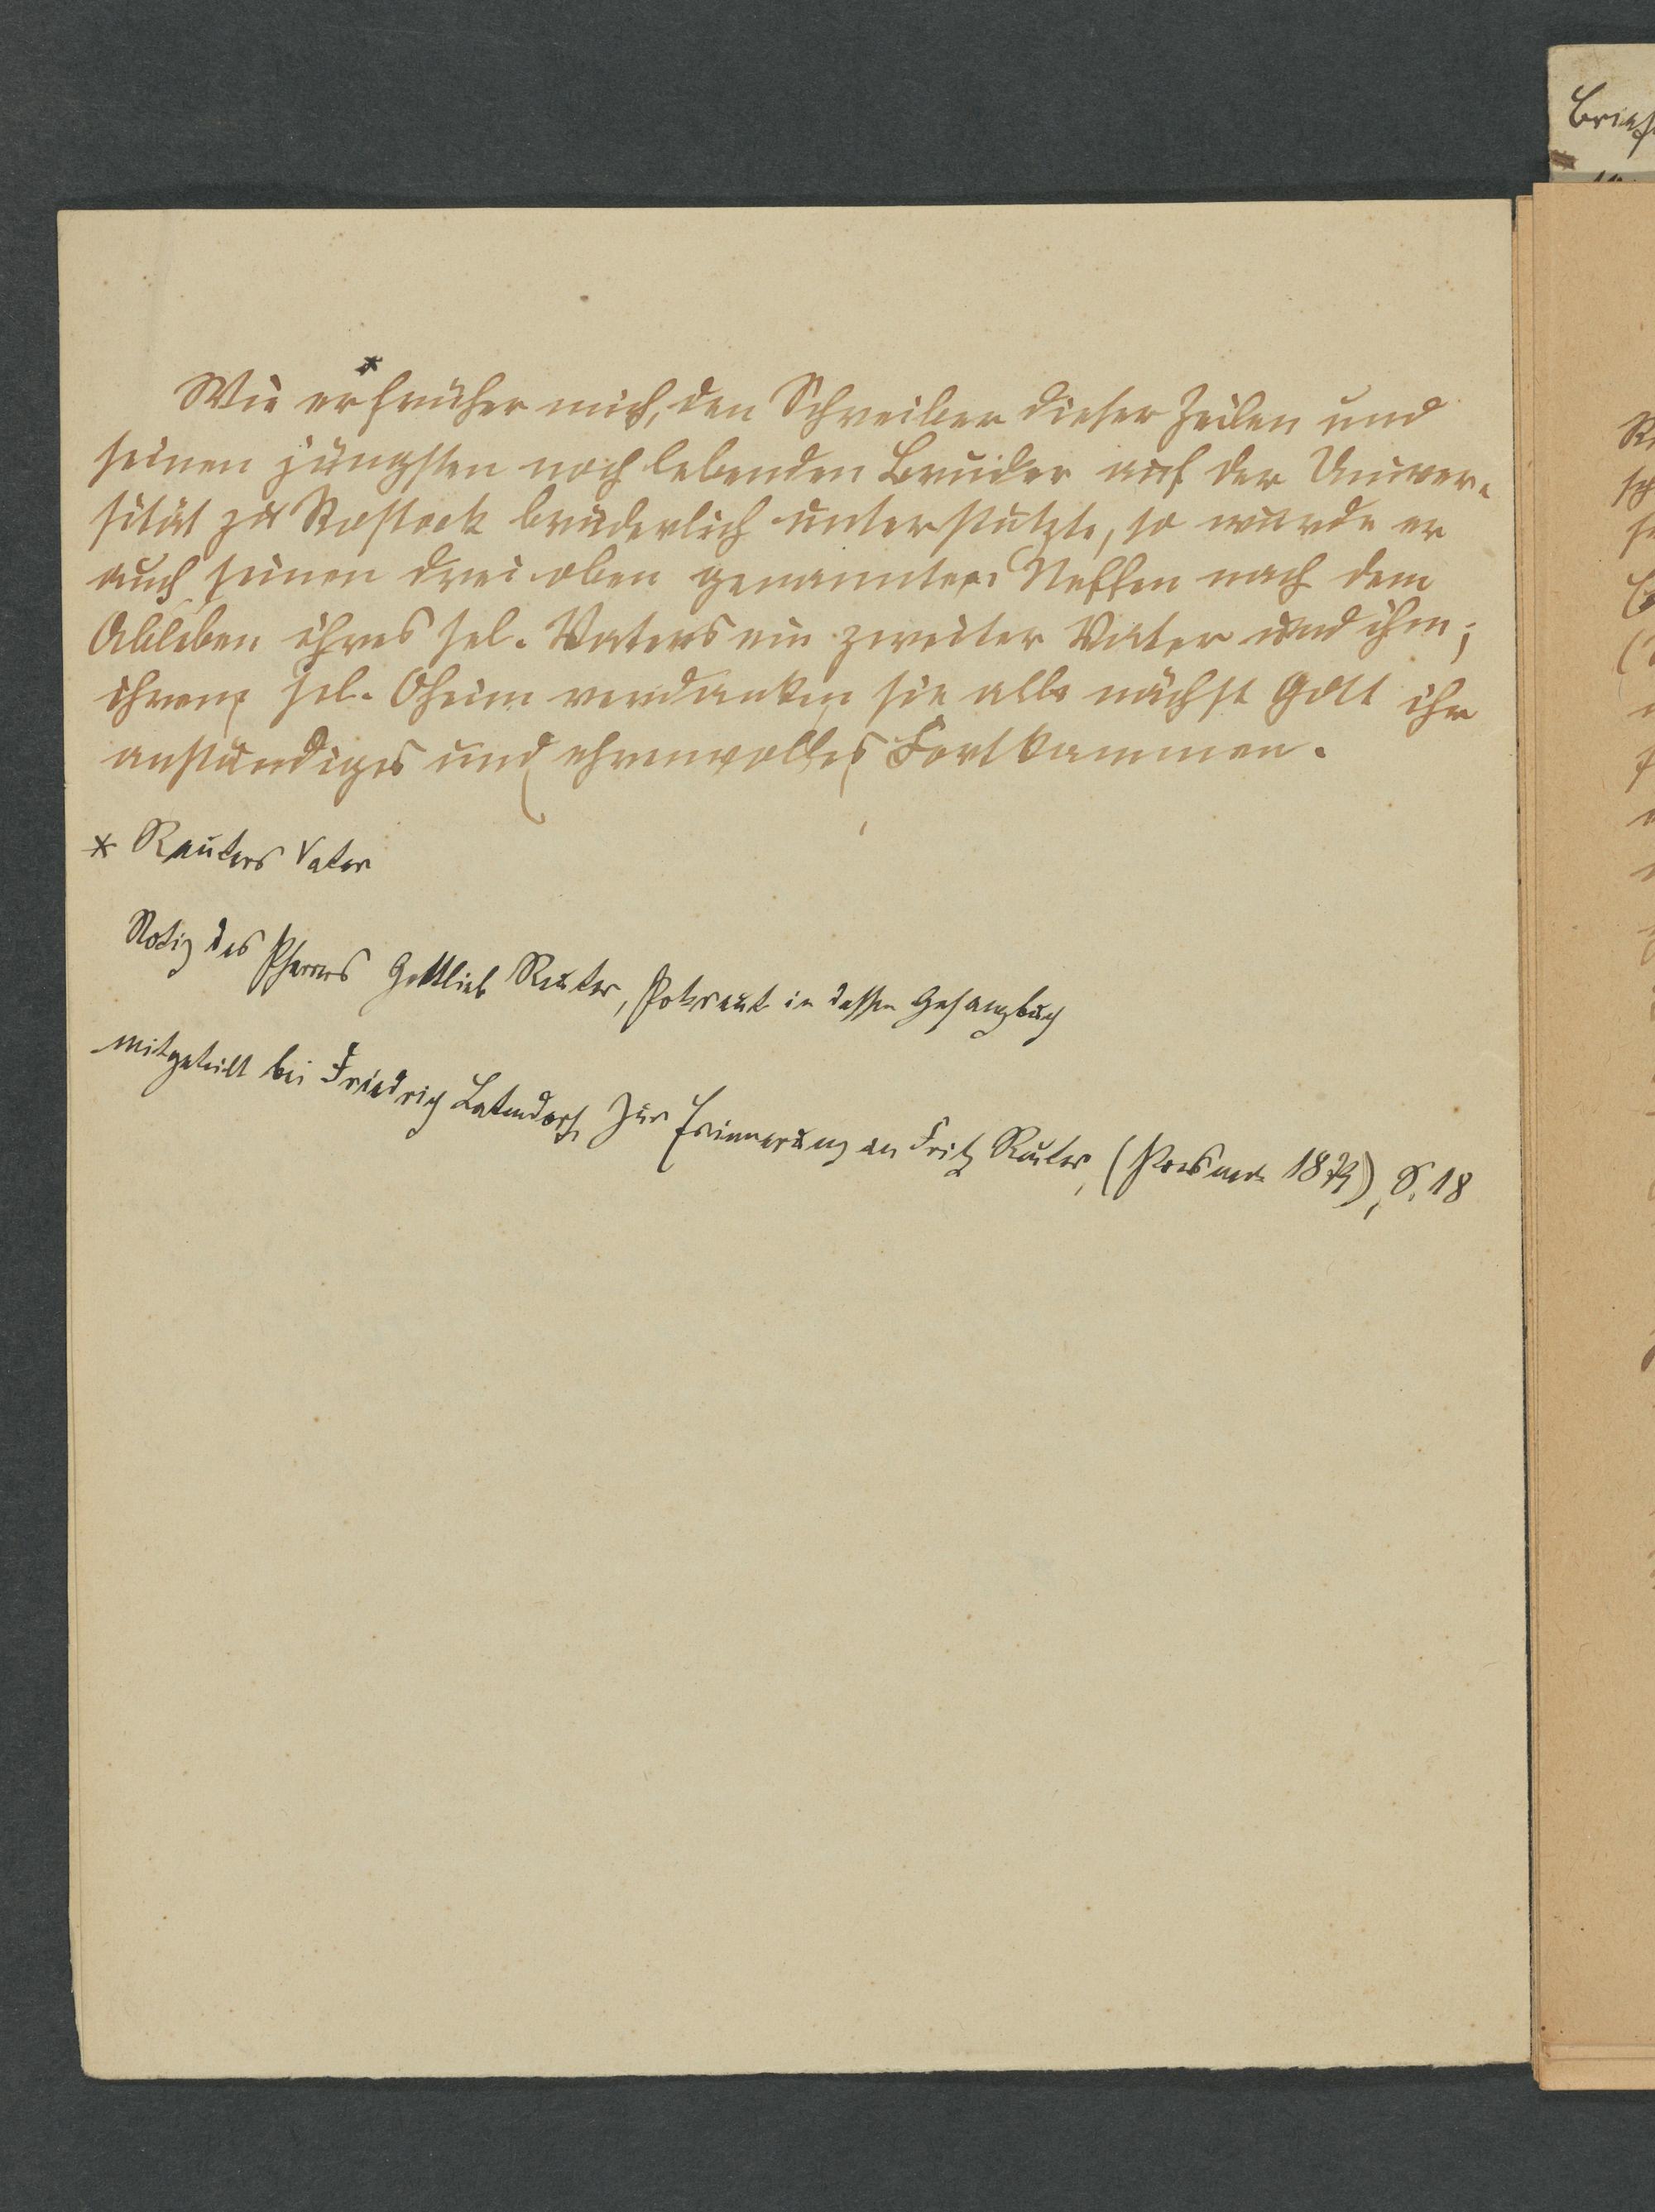 Wie er* früher mich, den Schreiber dieser Zeilen und
seinen jüngsten noch lebenden Bruder auf der Univer-
sität zu Rostock brüderlich unterstützte, so wurde er
auch seinen drei oben genannten Neffen nach dem
Ableben ihres sel. Vaters ein zweiter Vater und ihm,
ihrem sel. Oheim verdanken sie alle nächst Gott ihr
anständiges und ehrenvolles Fortkommen.
* Reuters Vater
Notiz des Pfarrers Gottlieb Reuter, Potrent in dessen Gesangbuch
mitgeteilt bei Friedrich Latendorf, Zur Erinnerung an Fritz Reuter, (Poesneck 1879), S. 18
Brief